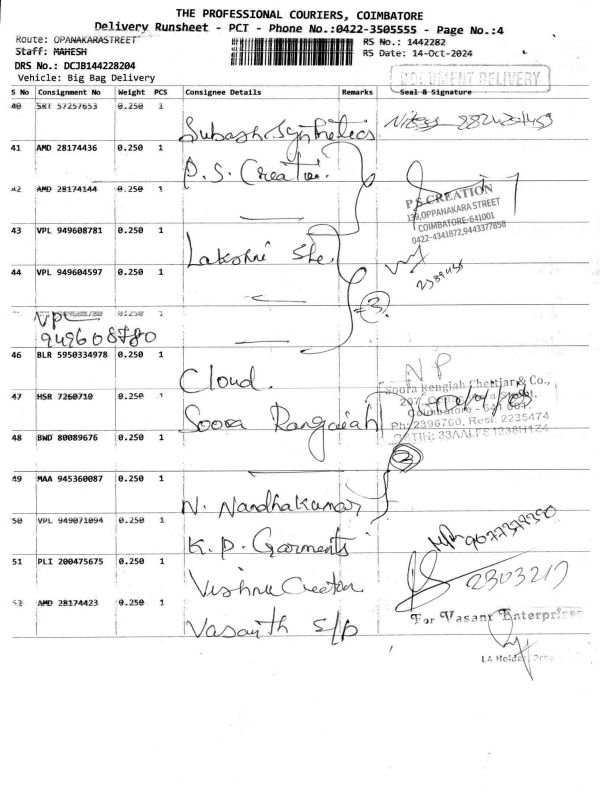 THE PROFESSIONAL COURIERS, COIMBATORE
Delivery Runsheet - PCT - Phone No.:0422-3505555 - Page No.:4
Route: OPANAKARASTREET
RS No.: 1442282
Staff: MAHESH
RS Date: 14-Oct-2024
DRS No.: DCJB144228204
DOCUMENT DELIVERY
Vehicle: Big Bag Delivery
S No Consignment No Weight PCS Consignee Details Remarks Seal & Signature
40 SRT 57257653 0.250 1 Subash Synthetics
41 AMD 28174436 0.250 1 P.S. Creation
42 AMD 28174144 0.250 1
P.S CREATION
139,OPPANAKARA STREET
COIMBATORE-641001
0422-4341872,9443377858
43 VPL 949608781 0.250 1 Lakshmi
44 VPL 949604597 0.250 1
3
VPL 0.250 1
949608780
46 BLR 5950334978 0.250 1 Cloud.
NP
Soora Rengiah Chettiar & Co.,
47 HSR 7260710 0.250 1 Soora Rangaiah
Coimbatore - 641 001.
Ph: 2396760, Resi: 2235474
48 BWD 80089676 0.250 1
2
49 MAA 945360087 0.250 1 N. Nandhakumar
50 VPL 949071094 0.250 1 K.P. Garments
51 PLI 200475675 0.250 1 Vishnu Creation
2303217
52 AMD 28174423 0.250 1 Vasanth S/P
For Vasant Enterprises